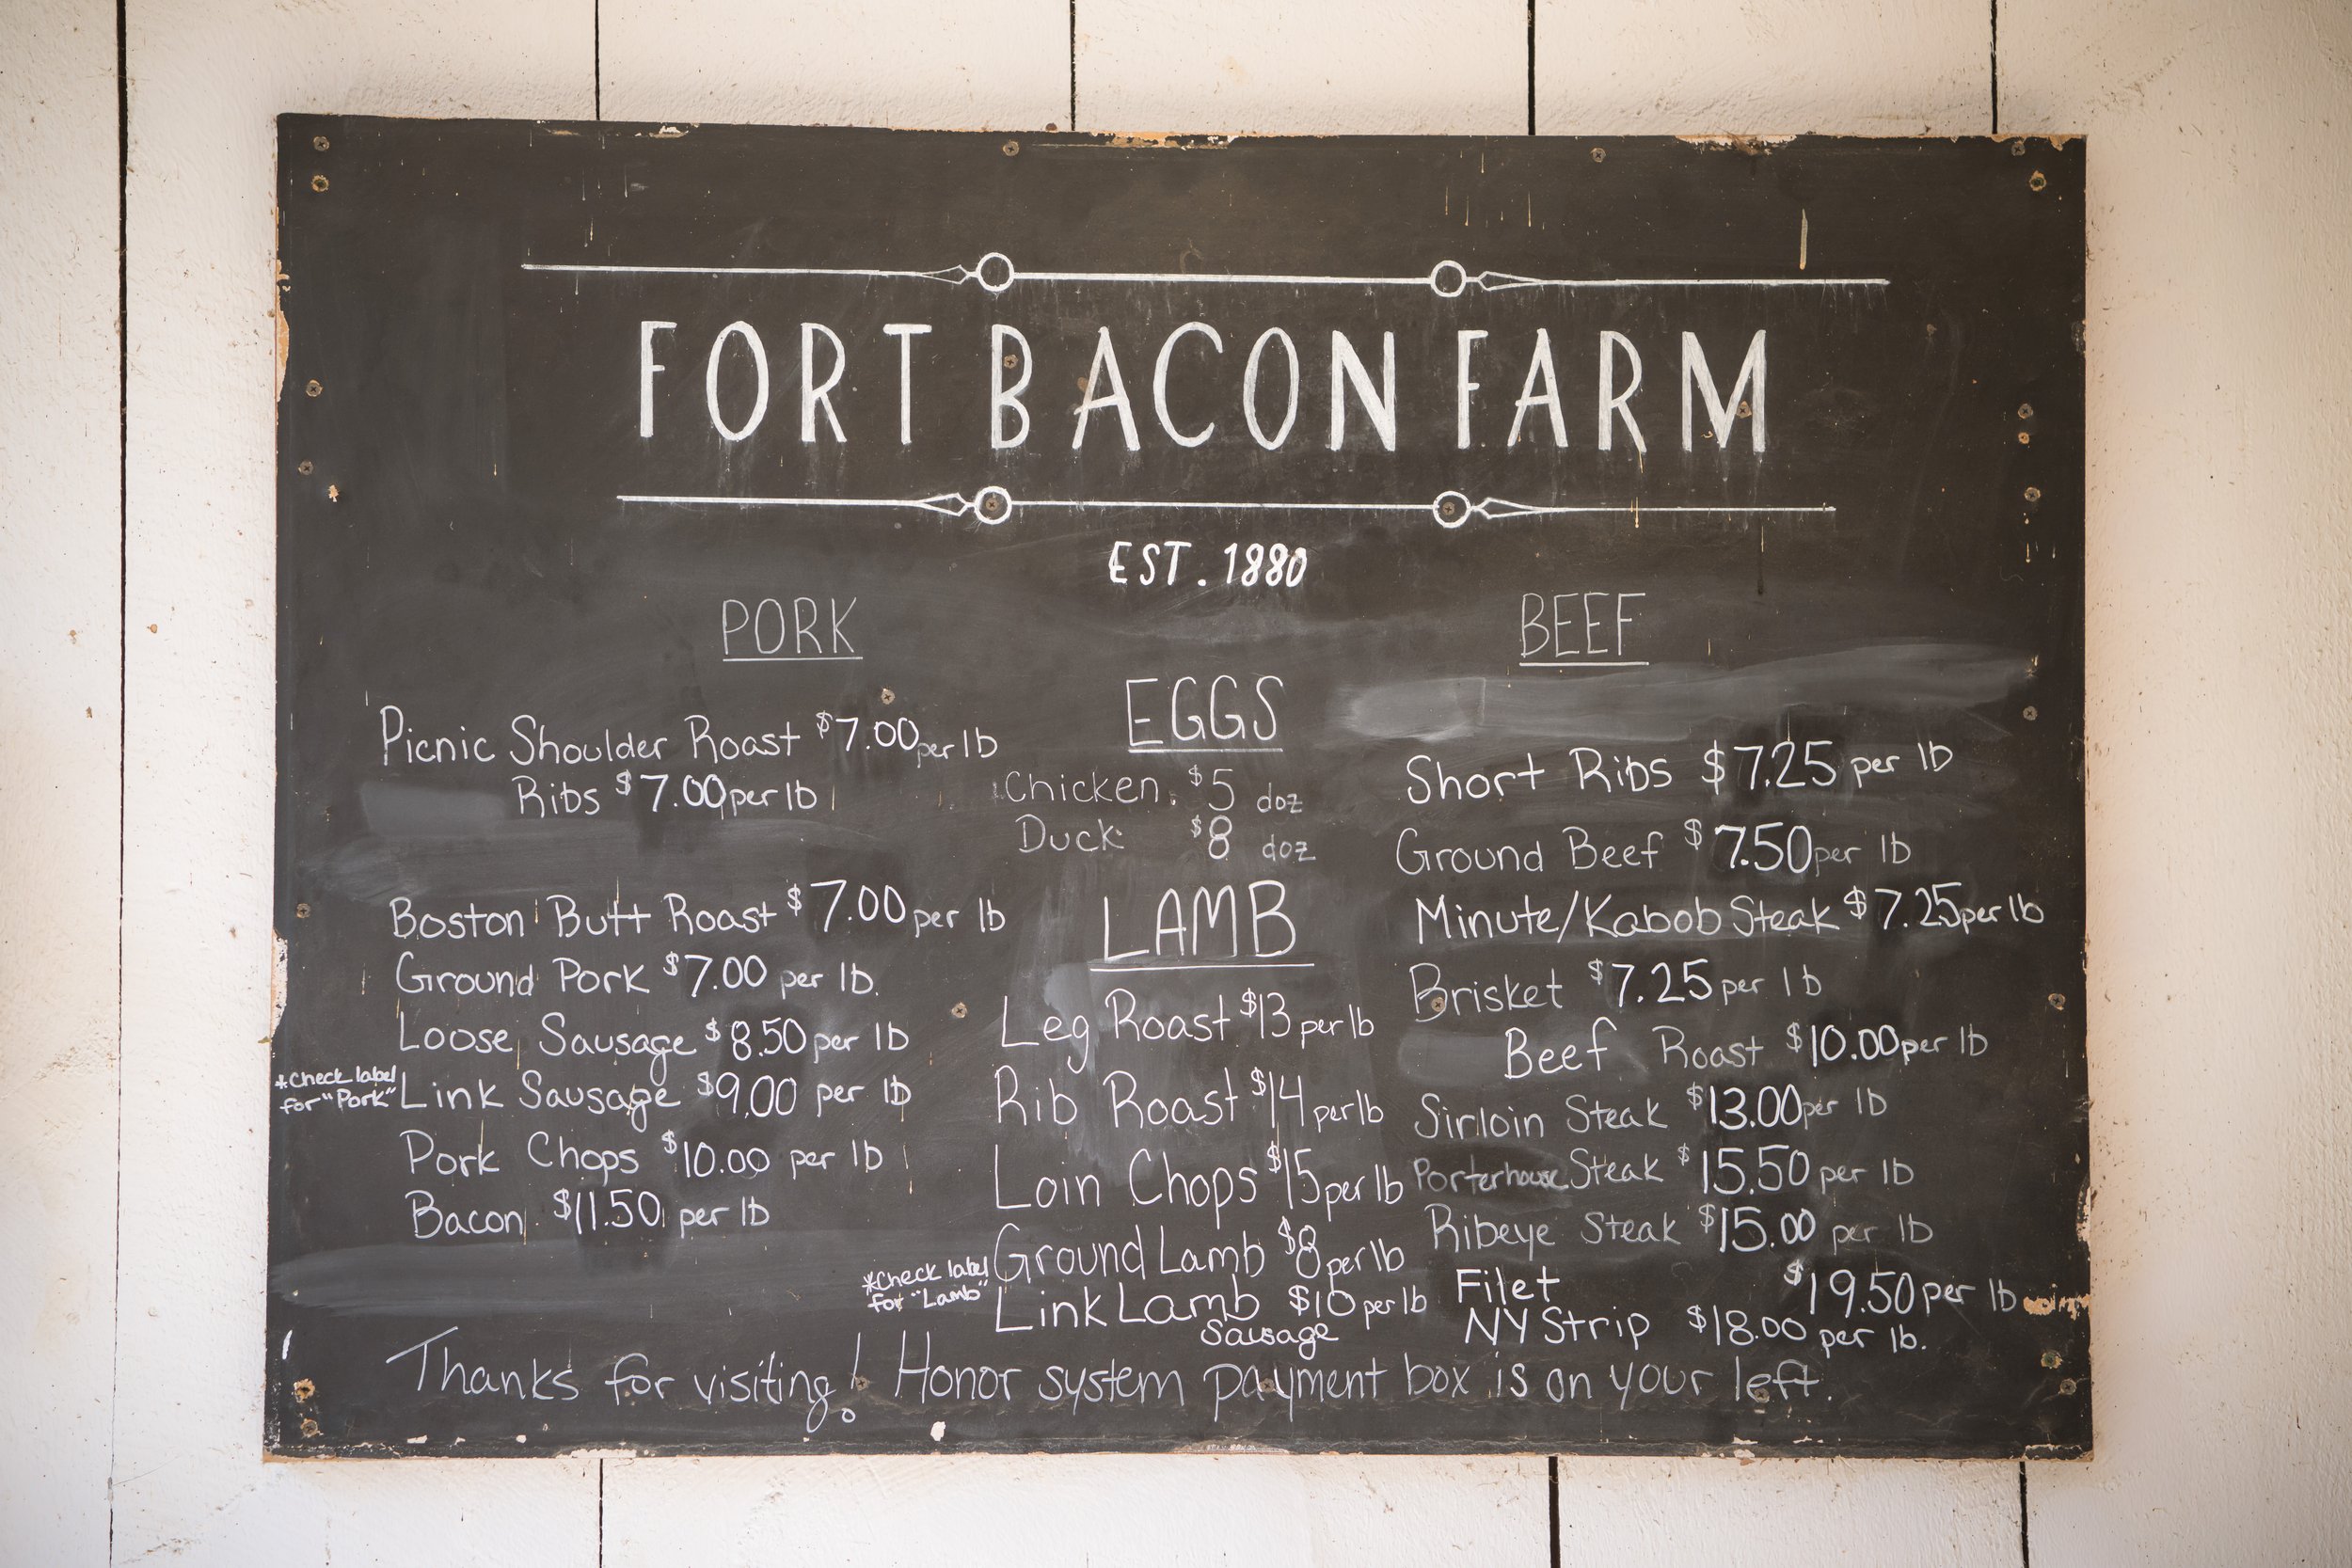 FORT BACON FARM
EST. 1880
PORK
Picnic Shoulder Roast $7.00 per lb
Ribs $7.00 per lb
Boston Butt Roast $7.00 per lb
Ground Pork $7.00 per lb.
Loose Sausage $8.50 per lb
*Check label
for "Pork"
Link Sausage $9.00 per lb
Pork Chops $10.00 per lb
Bacon $11.50 per lb
EGGS
Chicken: $5 doz
Duck: $8 doz
LAMB
Leg Roast $13 per lb
Rib Roast $14 per lb
Loin Chops $15 per lb
Ground Lamb $8 per lb
*Check label
for "Lamb"
Link Lamb $10 per lb
Sausage
BEEF
Short Ribs $7.25 per lb
Ground Beef $7.50 per lb
Minute/Kabob Steak $7.25 per lb
Brisket $7.25 per lb
Beef Roast $10.00 per lb
Sirloin Steak $13.00 per lb
Porterhouse Steak $15.50 per lb
Ribeye Steak $15.00 per lb
Filet $19.50 per lb
NY Strip $18.00 per lb.
Thanks for visiting! Honor system payment box is on your left.